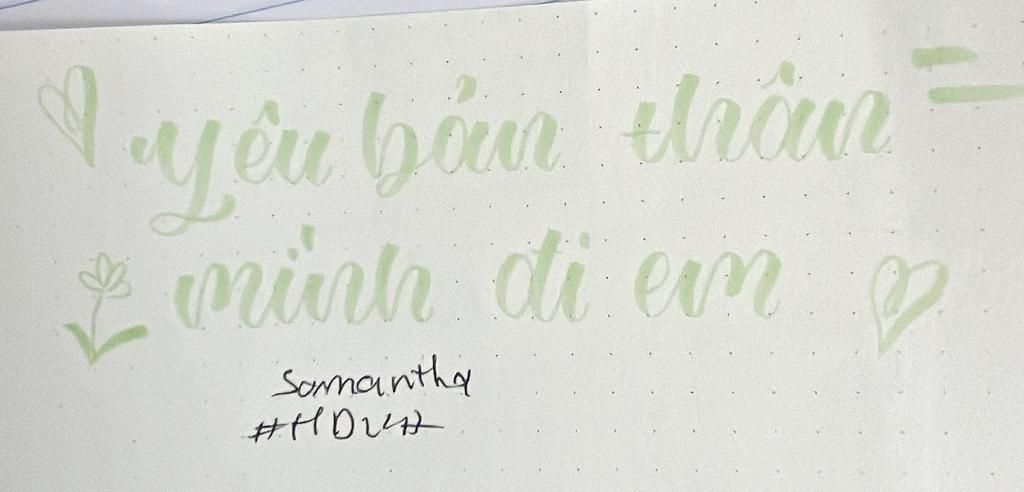 yêu bản thân
mình đi em
Samantha